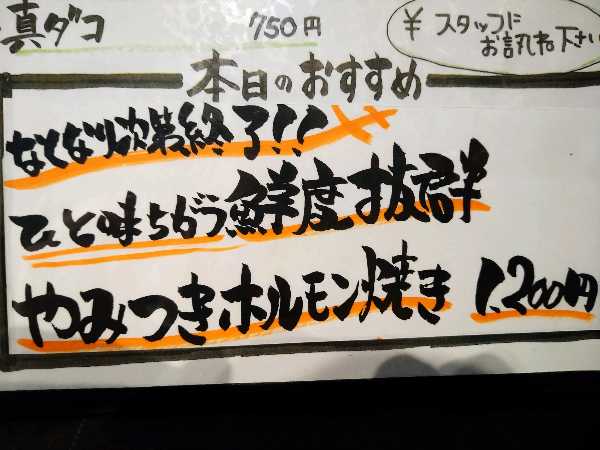 真ダコ 750円
¥ スタッフに
お訊ね下さい
本日のおすすめ
なくなり次第終了!!
ひと味ちがう鮮度抜群
やみつきホルモン焼き 1,200円